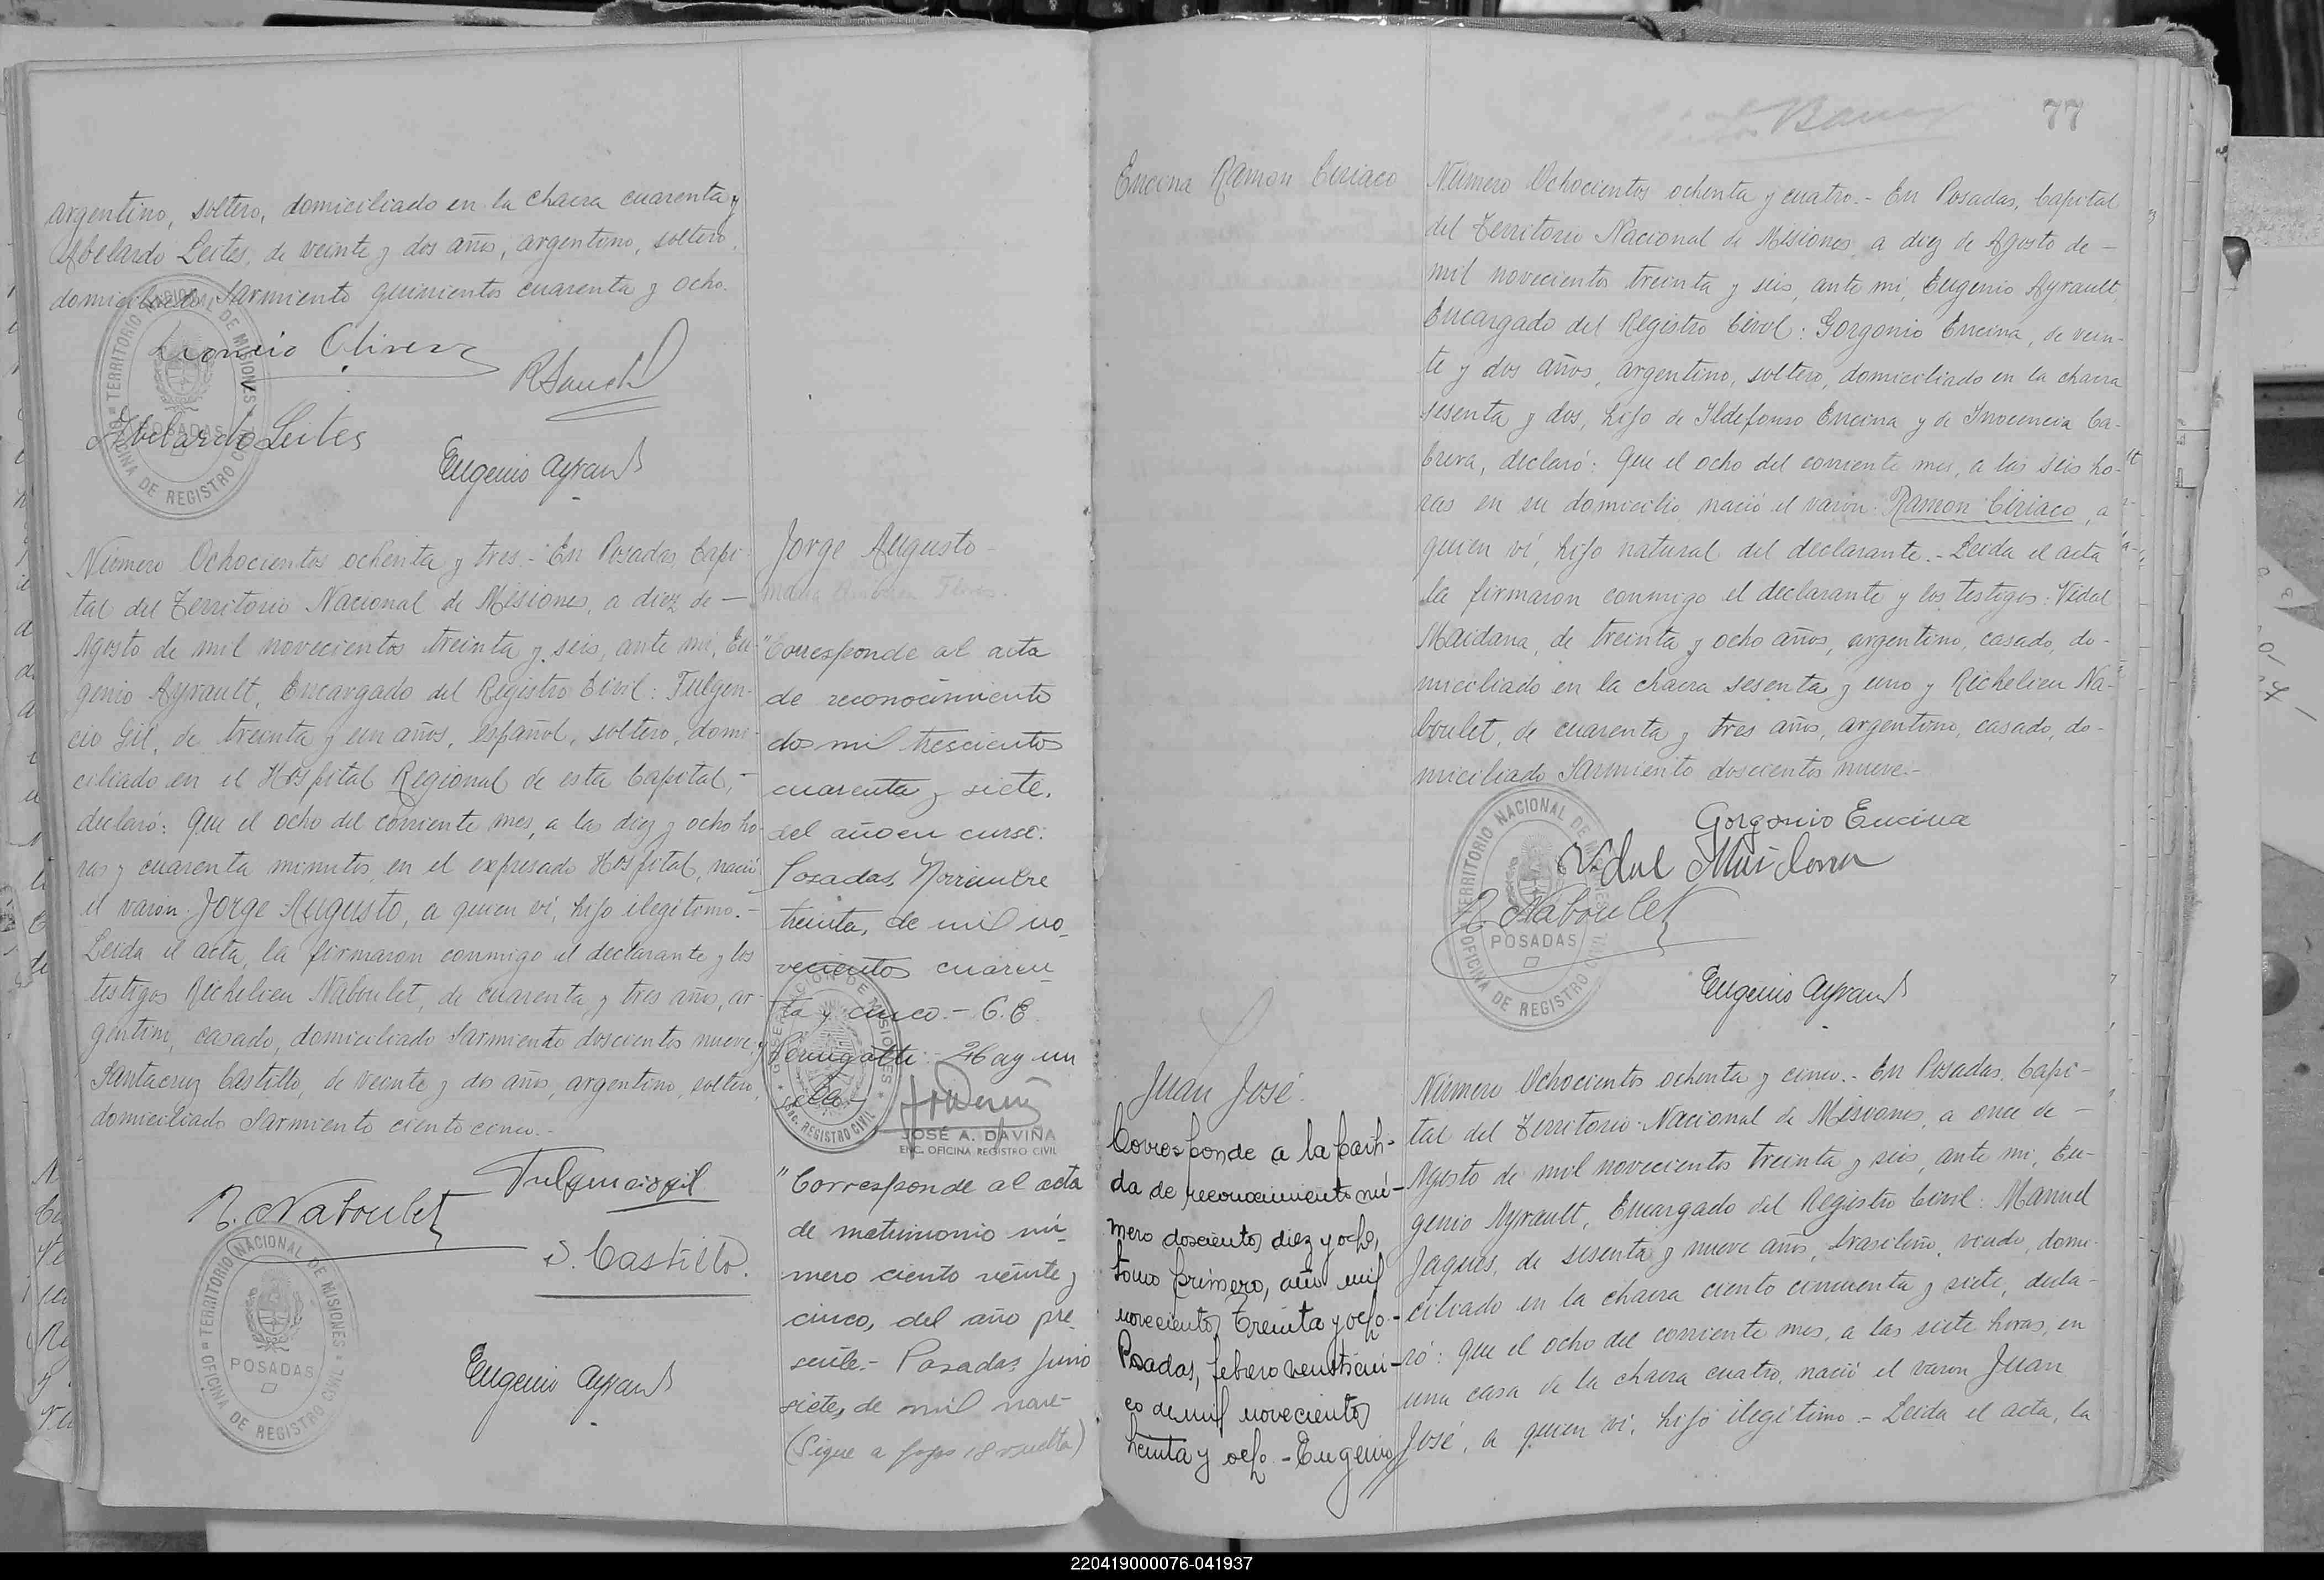 argentino, soltero, domiciliado en la chacra cuarenta y
Abelardo Leites, de veinte y dos años, argentino, soltero,
domiciliado Sarmiento quinientos cuarenta y ocho.
Abelardo Leites
Eugenio Ayrault
TERRITORIO NACIONAL DE MISIONES
OFICINA DE REGISTRO CIVIL
POSADAS
Número Ochocientos ochenta y tres.- En Posadas, Capi-
tal del Territorio Nacional de Misiones, a diez de —
Agosto de mil novecientos treinta y seis, ante mí, Eu-
genio Ayrault, Encargado del Registro Civil: Fulgen-
cio Gil, de treinta y un años, español, soltero, domi-
ciliado en el Hospital Regional de esta Capital, -
declaró: Que el ocho del corriente mes, a las diez y ocho ho-
ras y cuarenta minutos, en el expresado Hospital, nació
el varón Jorge Augusto, a quien ví, hijo ilegítimo.-
Leída el acta, la firmaron conmigo el declarante y los
testigos Richelieu Naboulet, de cuarenta y tres años, ar-
gentino, casado, domiciliado Sarmiento doscientos nueve, y
Santacruz Castillo, de veinte y dos años, argentino, soltero,
domiciliado Sarmiento ciento cinco.-
Fulgencio Gil
R. Naboulet
S. Castillo.
TERRITORIO NACIONAL DE MISIONES
OFICINA DE REGISTRO CIVIL
POSADAS
Eugenio Ayrault
Jorge Augusto -
"Corresponde al acta
de reconocimiento
dos mil trescientos
cuarenta y siete,
del año en curso.
Posadas, Noviembre
treinta, de mil no-
vecientos cuaren-
ta y cinco.- C.E.
Hay un
sello
REGISTRO CIVIL
JOSÉ A. DAVIÑA
ENC. OFICINA REGISTRO CIVIL
"Corresponde al acta
de matrimonio nú-
mero ciento veinte y
cinco, del año pre-
sente.- Posadas, Junio
siete, de mil nove-
(Sigue a fojas 18 vuelta)
77
Encina Ramon Ciriaco
Número Ochocientos ochenta y cuatro.- En Posadas, Capital
del Territorio Nacional de Misiones, a diez de Agosto de —
mil novecientos treinta y seis, ante mí, Eugenio Ayrault,
Encargado del Registro Civil: Gorgonio Encina, de vein-
te y dos años, argentino, soltero, domiciliado en la chacra
sesenta y dos, hijo de Ildefonso Encina y de Inocencia Ca-
brera, declaró: Que el ocho del corriente mes, a las seis ho-
ras en su domicilio nació el varón Ramon Ciriaco, a
quien ví, hijo natural del declarante.- Leída el acta
la firmaron conmigo el declarante y los testigos: Vidal
Maidana, de treinta y ocho años, argentino, casado, do-
miciliado en la chacra sesenta y uno y Richelieu Na-
boulet, de cuarenta y tres años, argentino, casado, do-
miciliado Sarmiento doscientos nueve.-
Gorgonio Encina
Vidal Maidana
R. Naboulet
TERRITORIO NACIONAL DE MISIONES
OFICINA DE REGISTRO CIVIL
POSADAS
Eugenio Ayrault
Juan José.
Corresponde a la parti-
da de reconocimiento nú-
mero doscientos diez y ocho,
tomo primero, año mil
novecientos treinta y ocho.-
Posadas, febrero veinticin-
co de mil novecientos
treinta y ocho.- Eugenio
Número Ochocientos ochenta y cinco.- En Posadas, Capi-
tal del Territorio Nacional de Misiones, a once de —
Agosto de mil novecientos treinta y seis, ante mí, Eu-
genio Ayrault, Encargado del Registro Civil: Manuel
Jaques, de sesenta y nueve años, brasileño, viudo, domi-
ciliado en la chacra ciento cincuenta y siete, decla-
ró: Que el ocho del corriente mes, a las siete horas, en
una casa de la chacra cuatro, nació el varón Juan
José, a quien ví, hijo ilegítimo.- Leída el acta, la
220419000076-041937